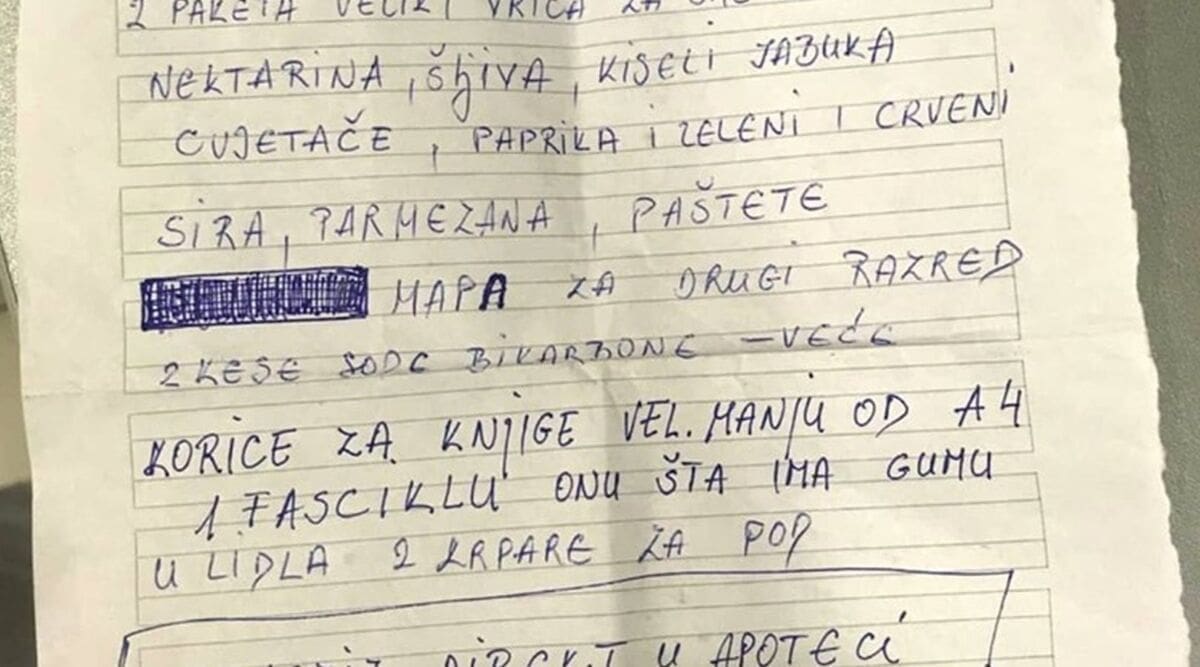 2 PAKETA VELIKI VRICA ZA
NEKTARINA, ŠLJIVA, KISELI JABUKA
CVJETAČE, PAPRIKA I ZELENI I CRVENI
SIRA, PARMEZANA, PAŠTETE
MAPA ZA DRUGI RAZRED
2 KESE SODE BIKARBONE - VEĆE
KORICE ZA KNJIGE VEL. MANJU OD A4
1 FASCIKLU ONU ŠTA IMA GUMU
U LIDLA 2 KRPARE ZA POD
U APOTECI